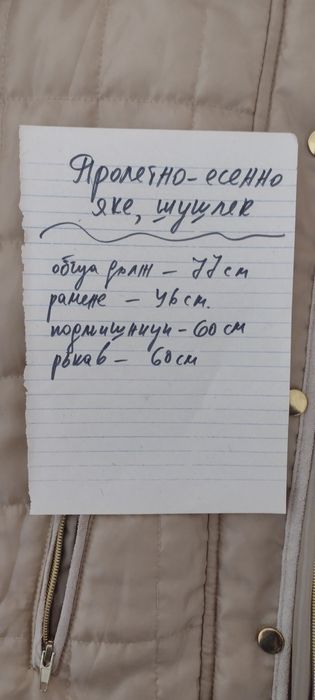 Пролетно-есенно
яке, шушлек
обща дълж - 77 см
рамене - 46 см.
подмишници - 60 см
ръкав - 60 см